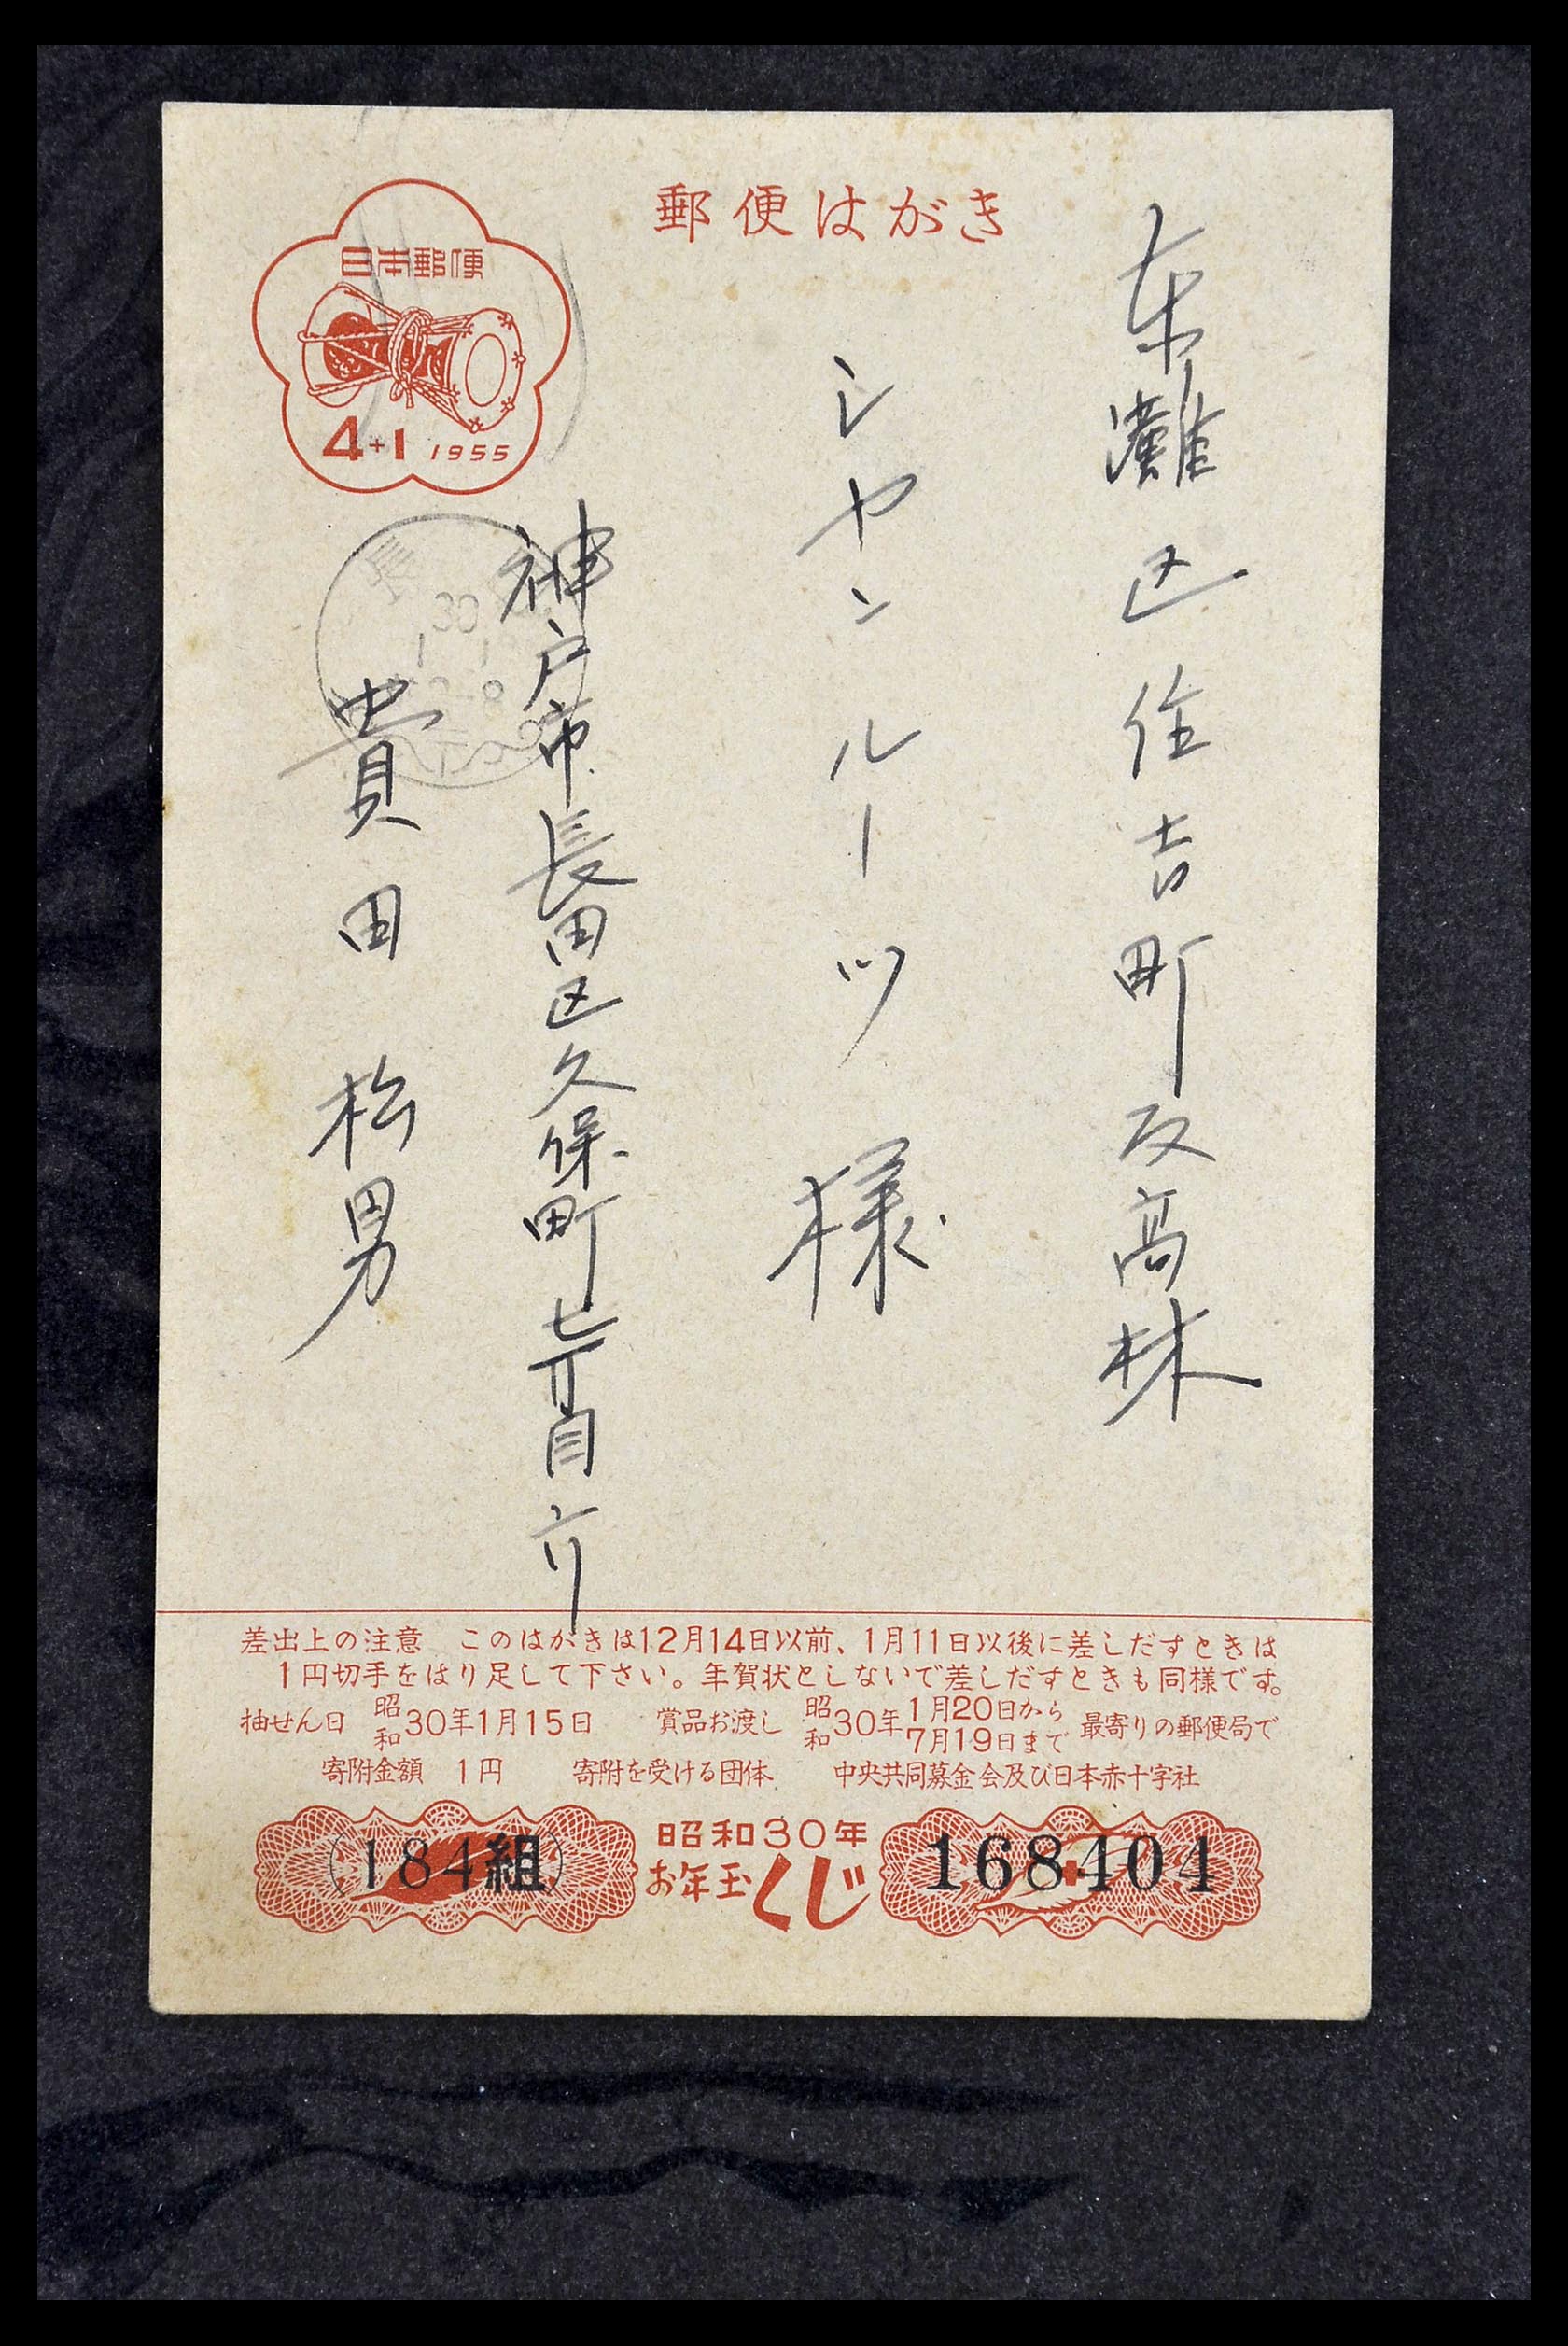 郵便はがき
日本郵便
4+1 1955
東灘区住吉町反高林
シヤンルーツ様
神戸市長田区久保町七丁目六
貴田松男
長
30
差出上の注意 このはがきは12月14日以前、1月11日以後に差しだすときは
1円切手をはり足して下さい。年賀状としないで差しだすときも同様です。
抽せん日 昭和30年1月15日 賞品お渡し 昭和30年1月20日から7月19日まで最寄りの郵便局で
寄附金額 1円 寄附を受ける団体 中央共同募金会及び日本赤十字社
(184組)
昭和30年
お年玉くじ
168404